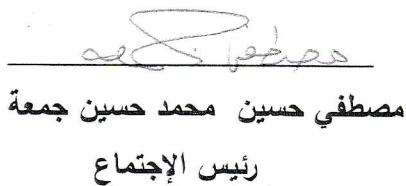 مصطفي جمعه
مصطفي حسين محمد حسين جمعة
رئيس الإجتماع